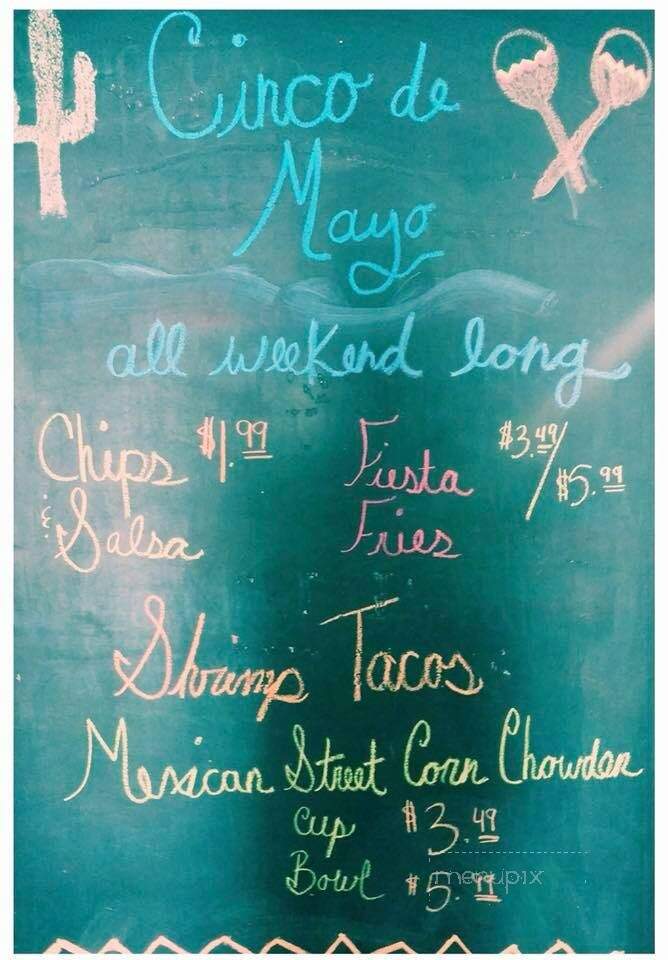 Cinco de
Mayo
all weekend long
Chips $1.99 Fiesta $3.49/$5.99
& Salsa Fries
Shrimp Tacos
Mexican Street Corn Chowder
Cup $3.49
Bowl $5.99
menupix